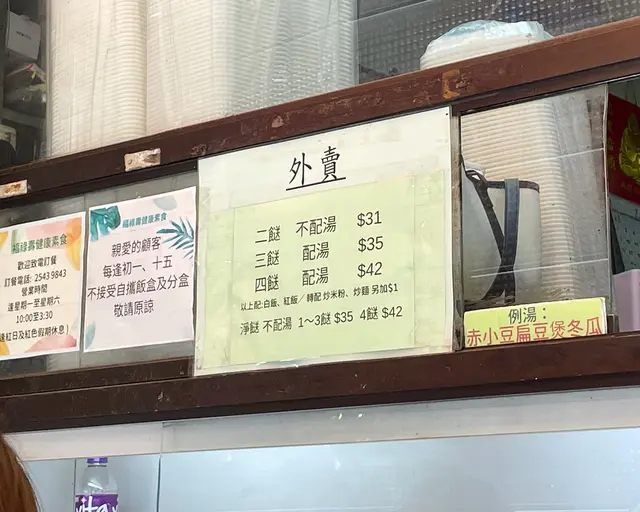 福祿壽健康素食
歡迎致電訂餐
訂餐電話: 2543 9843
營業時間
逢星期一至星期六
10:00至3:30
逢紅日及紅色假期休息
福祿壽健康素食
親愛的顧客
每逢初一、十五
不接受自攜飯盒及分盒
敬請原諒
外賣
二餸 不配湯 $31
三餸 配湯 $35
四餸 配湯 $42
以上配:白飯、紅飯／轉配 炒米粉、炒麵 另加$1
淨餸 不配湯 1～3餸 $35 4餸 $42
例湯：
赤小豆扁豆煲冬瓜
vita